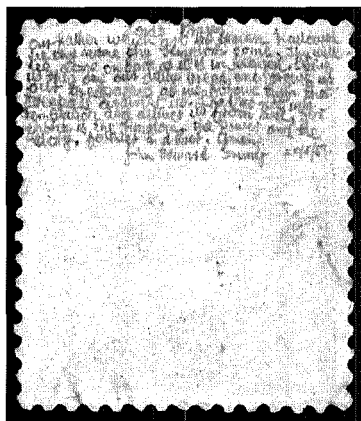 Our Father which art in heaven, hallowed
be thy name. Thy kingdom come. Thy will
be done on earth as it is in heaven. Give
us this day our daily bread, and forgive us
our trespasses as we forgive them that
trespass against us and lead us not into
temptation and deliver us from evil. For
thine is the kingdom, the power and the
glory, for ever and ever. Amen.
John Edward